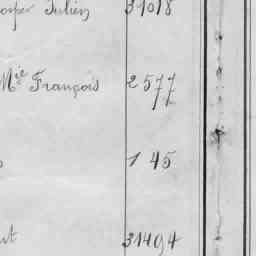 Julien 31018
Mie François 2577
145
31494